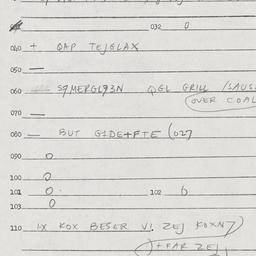 032 0
040 + QAP TEJGLAX
050 —
060 S9MERGL93N QGL GRILL /SAUS
(OVER COAL
070 —
080 — BUT G1DE+FTE (027
090 0
100 0
101 0 102 6
103 0
110 1X KOX BESER VI, ZEJ KOXN7)
)+FAR ZEJ